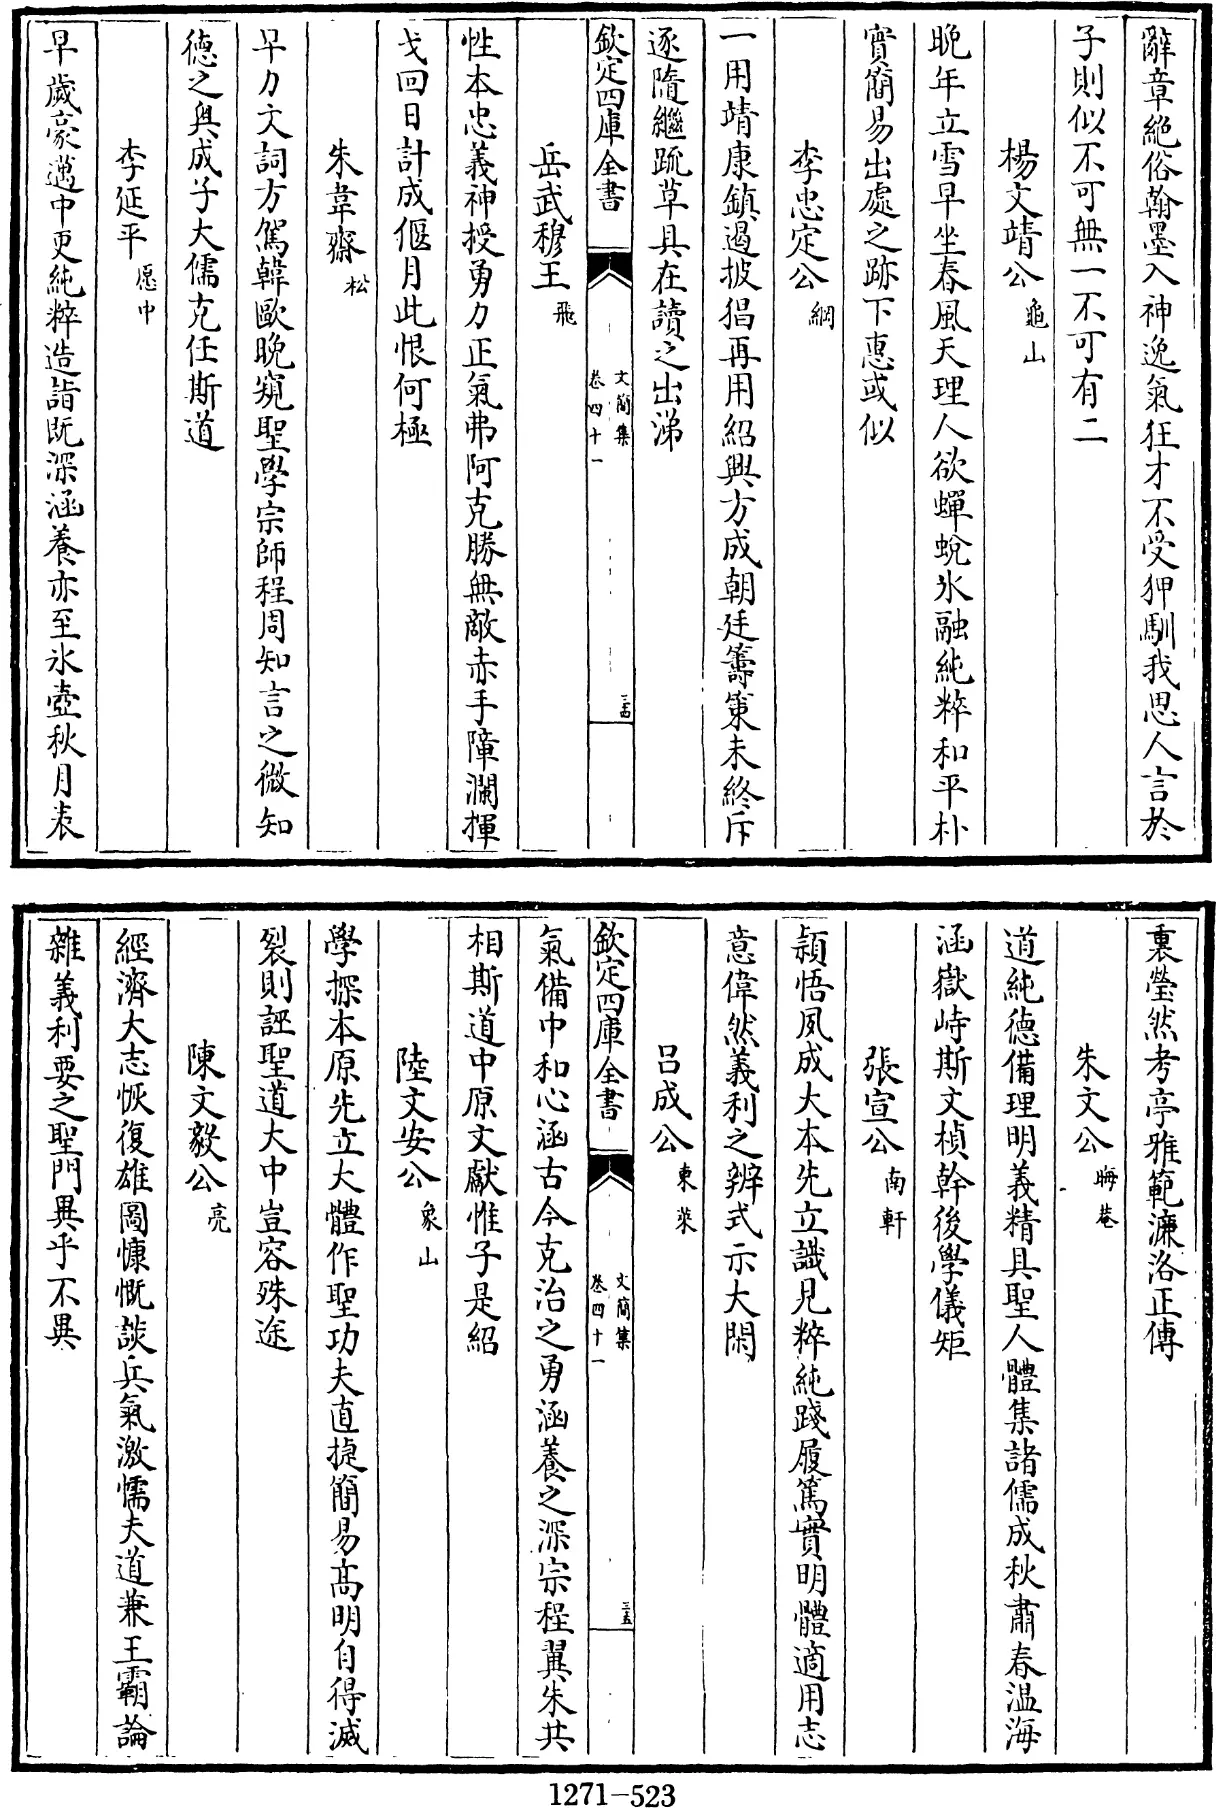 辭章絶俗翰墨入神逸氣狂才不受狎馴我思人言於
子則似不可無一不可有二
楊文靖公 龜山
晩年立雪早坐春風天理人欲蟬蛻氷融純粹和平朴
實簡易出處之跡下惠或似
李忠定公 綱
一用靖康鎮遏披猖再用紹興方成朝廷籌策未終斥
逐隨繼䟽草具在讀之出涕
欽定四庫全書
文簡集
卷四十一
三四
岳武穆王 飛
性本忠義神授勇力正氣弗阿克勝無敵赤手障瀾揮
戈回日計成偃月此恨何極
朱韋齋 松
早力文詞方駕韓歐晩窺聖學宗師程周知言之微知
徳之奥成子大儒克任斯道
李延平 愿中
早歲豪邁中更純粹造詣既深涵養亦至氷壺秋月表
裏瑩然考亭雅範濂洛正傳
朱文公 晦菴
道純德備理明義精具聖人體集諸儒成秋肅春温海
涵嶽峙斯文楨幹後學儀矩
張宣公 南軒
頴悟夙成大本先立識見粹純踐履篤實明體適用志
意偉然義利之辨式示大閑
吕成公 東萊
欽定四庫全書
文簡集
卷四十一
三五
氣備中和心涵古今克治之勇涵養之深宗程翼朱共
相斯道中原文獻惟子是紹
陸文安公 象山
學探本原先立大體作聖功夫直捷簡易髙明自得滅
裂則誣聖道大中豈容殊途
陳文毅公 亮
經濟大志恢復雄圖慷慨談兵氣激懦夫道兼王霸論
雜義利要之聖門異乎不異
1271-523